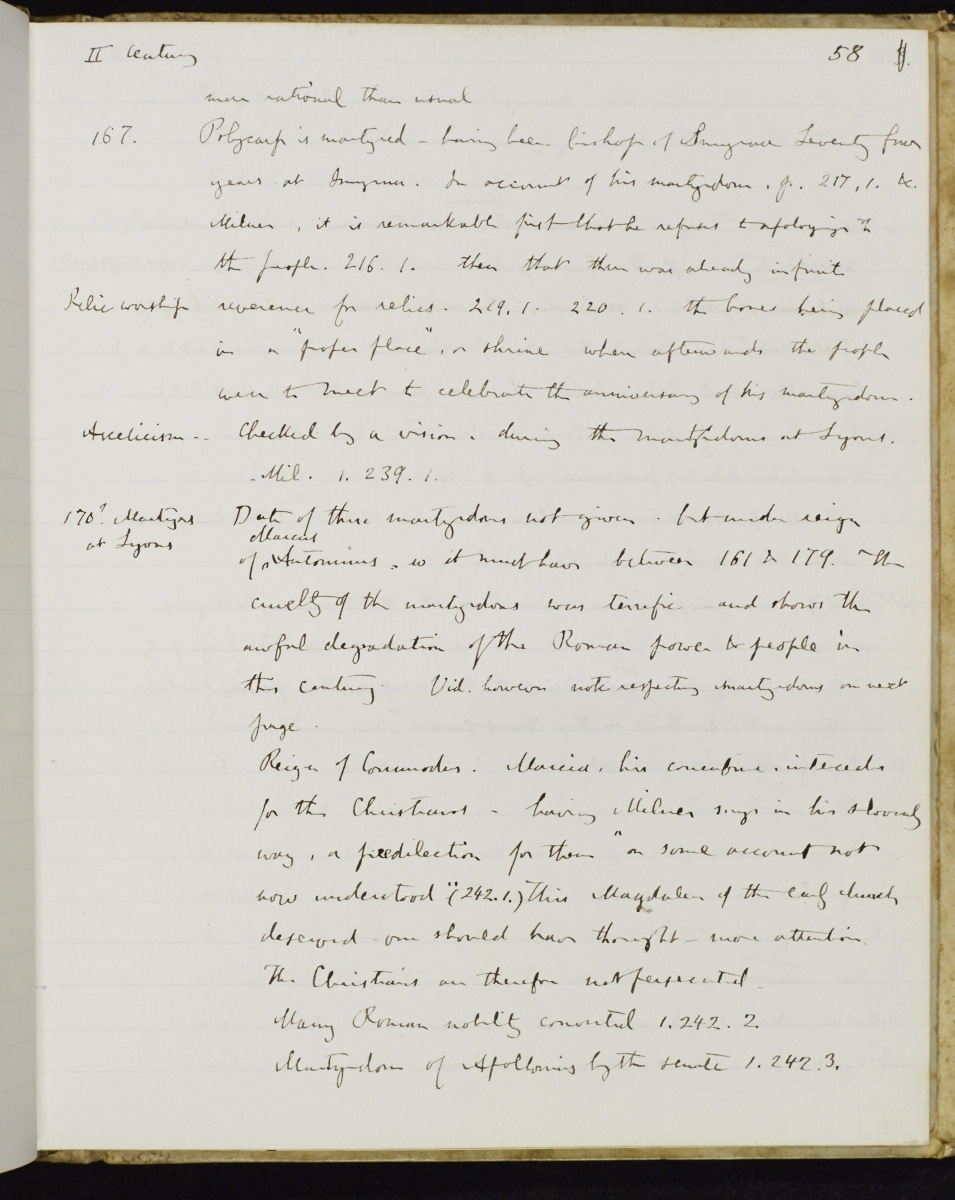 II Century 58
more rational than usual
167. Polycarp is martyred - having been bishop of Smyrna Seventy four
years at Smyrna. In account of his martyrdom, p. 217, 1. &c.
Milner, it is remarkable first that he refuses to apologize to
the people. 216. 1. then that there was already infinite
Relic worship reverence for relics. 219. 1. 220. 1. the bones being placed
in a "proper place", or shrine where afterwards the people
were to meet to celebrate the anniversary of his martyrdom.
Asceticism.. Checked by a vision. during the martyrdoms at Lyons.
Mil. 1. 239. 1.
170? Martyrs at Lyons Date of these martyrdoms not given. but under reign
of Marcus Antoninus, so it must have between 161 & 179. The
cruelty of the martyrdoms was terrific and shows the
awful degradation of the Roman power & people in
this century. Vid. however note respecting martyrdoms on next
page.
Reign of Commodus. Marcia, his concubine intercedes
for the Christians - having Milner says in his slovenly
way, a predilection for them "on some account not
now understood" (242.1.) This Magdalen of the early church
deserved - one should have thought - more attention.
The Christians are therefore not persecuted.
Many Roman nobility converted 1. 242. 2.
Martyrdom of Apollonius by the senate 1. 242. 3.